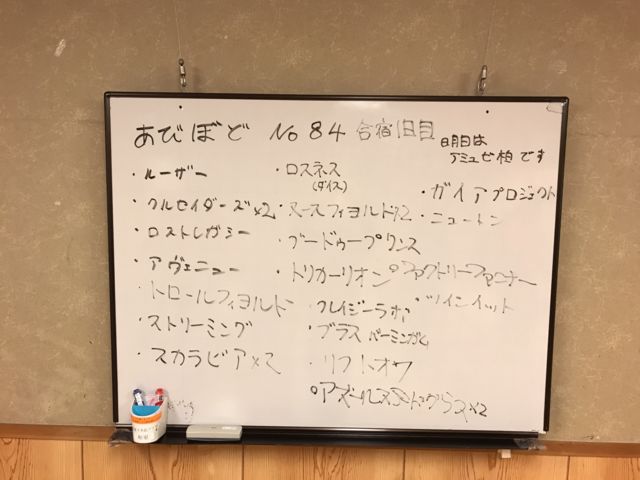 あびぼど No 84 合宿1日目
明日は
アミュゼ柏です
・ルーザー
・クルセイダーズ×2
・ロストレガシー
・アヴェニュー
・トロールフィヨルド
・ストリーミング
・スカラビア×2
・ロスネス
(ダイス)
・ヌースフィヨルド×2
・ブードゥープリンス
・トリカーリオン
・クレイジーラボ
・ブラス バーミンガム
・リフトオフ
・アズールステンドグラス×2
・ガイアプロジェクト
・ニュートン
・ファクトリーファナー
・ツインイット